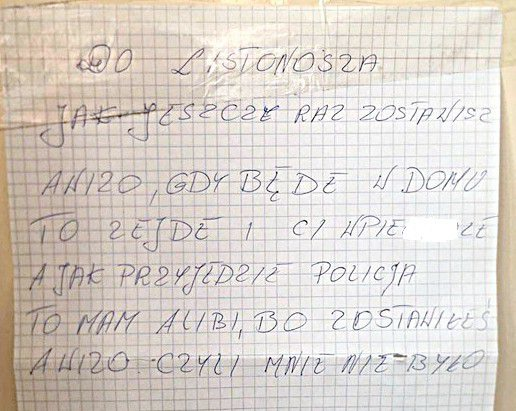 DO LISTONOSZA
JAK JESZCZE RAZ ZOSTAWISZ
AWIZO, GDY BĘDĘ W DOMU
TO ZEJDĘ I CI
A JAK PRZYJEDZIE POLICJA
TO MAM ALIBI, BO ZOSTAWIŁEŚ
AWIZO CZYLI MNIE NIE BYŁO